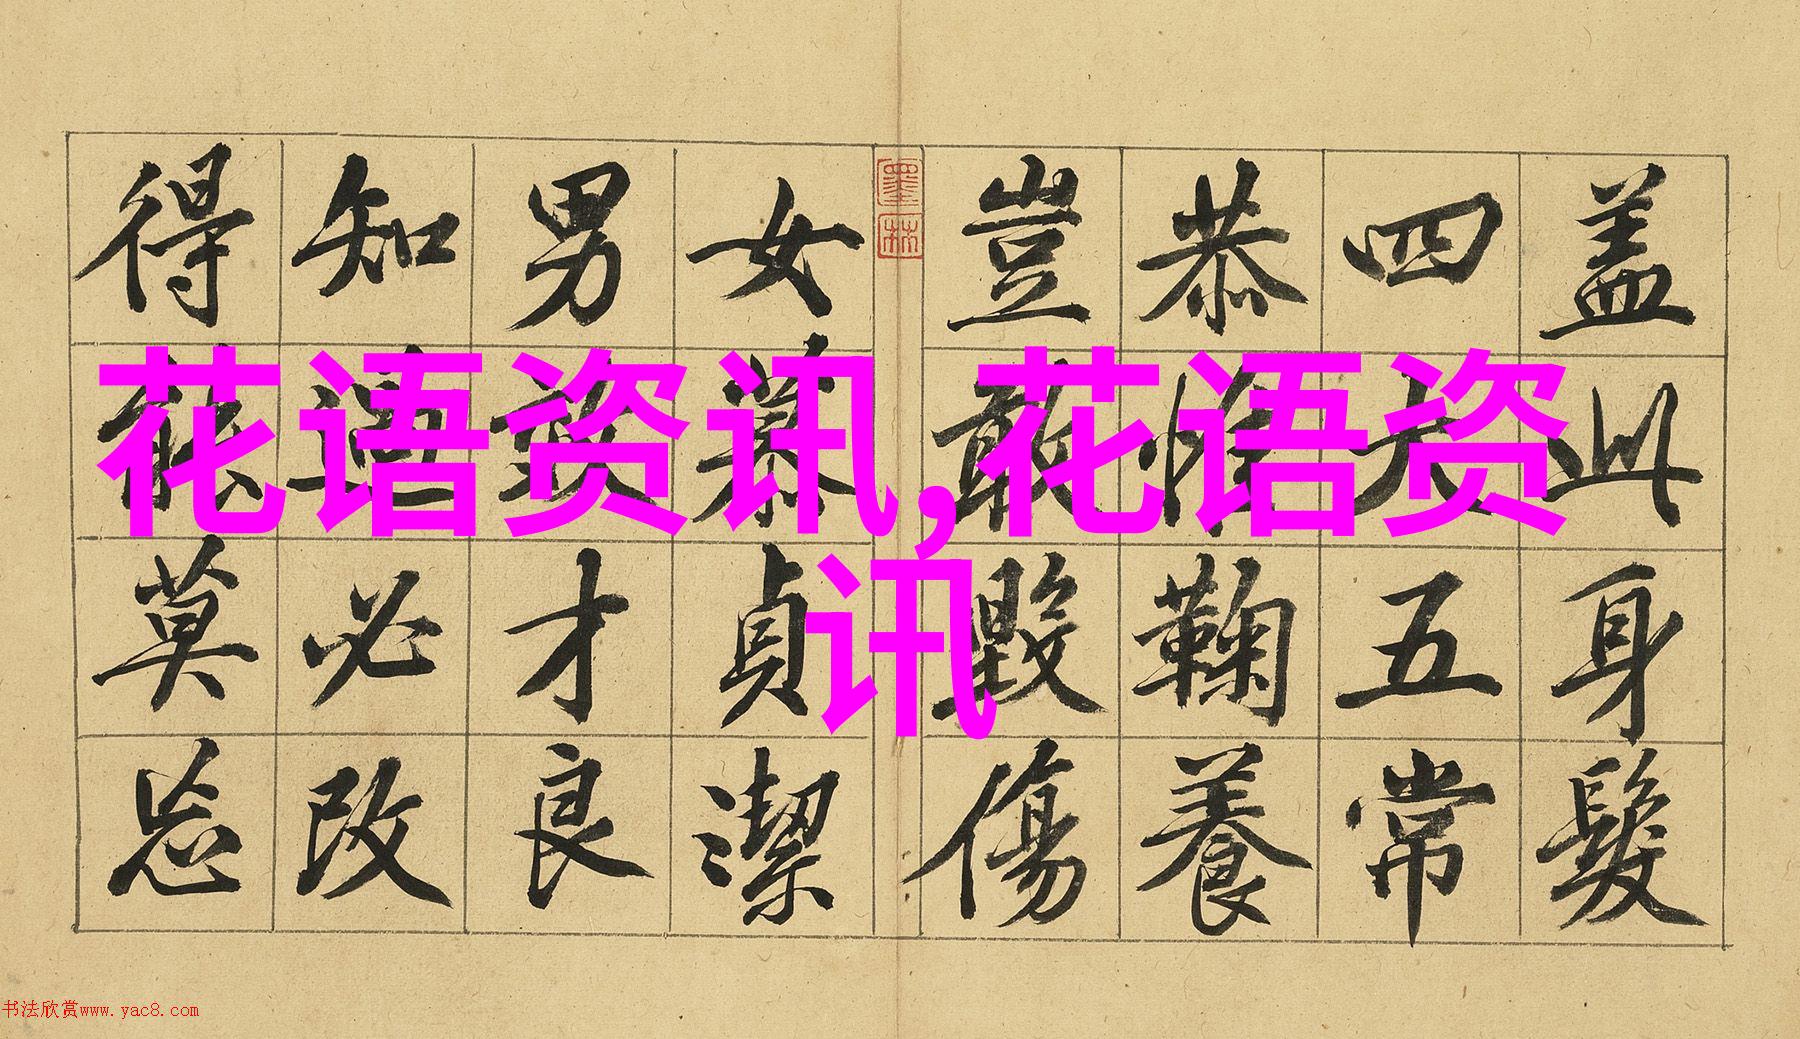 盖此身髮
四大五常
恭惟鞠養
豈敢毀傷
墨林
女慕貞潔
男效才良
知過必改
得能莫忘
花语资讯,花语资
讯
书法欣赏www.yac8.com